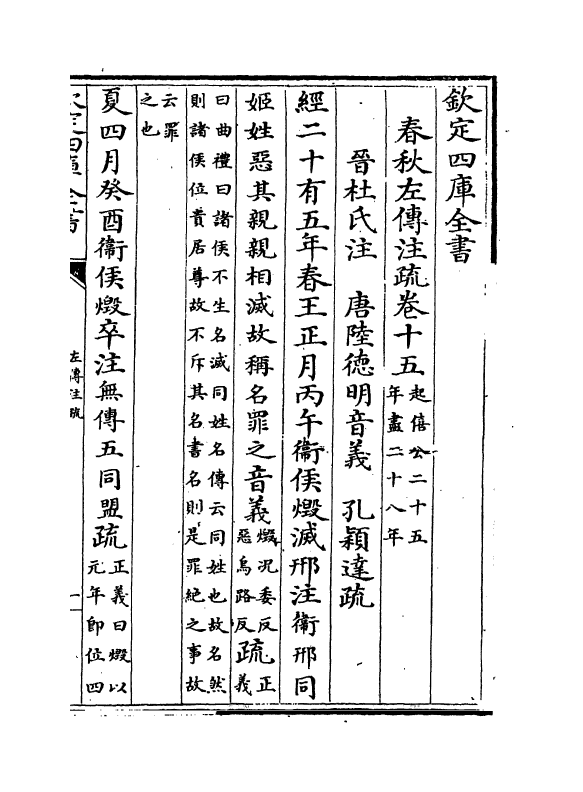 欽定四庫全書
春秋左傳注疏卷十五起僖公二十五
年盡二十八年
晉杜氏注　唐陸德明音義　孔穎達疏
經二十有五年春王正月丙午衞侯燬滅邢注衞邢同
姬姓惡其親親相滅故稱名罪之音義燬況委反
惡烏路反疏正
義
曰曲禮曰諸侯不生名滅同姓名傳云同姓也故名然
則諸侯位貴居尊故不斥其名書名則是罪絕之事故
云罪
之也
夏四月癸酉衞侯燬卒注無傳五同盟疏正義曰燬以
元年即位四
欽定四庫全書
左傳注疏
一